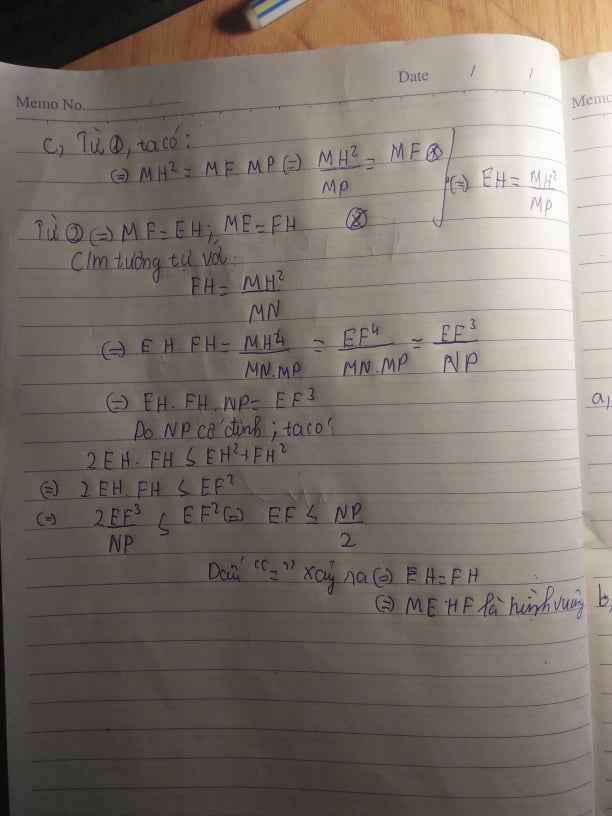 Date / /
Memo No.
Memo
C, Từ ①, ta có:
(=) MH² = MF MP (=) MH²/MP = MF ⊗
(=) EH = MH²/MP
Từ ② (=) MF = EH; ME = FH ⊗
C/m tương tự với:
FH = MH²/MN
(=) EH FH = MH⁴/MN.MP = EF⁴/MN.MP = EF³/NP
(=) EH. FH. NP = EF³
Do NP cố định; ta có:
2EH. FH ≤ EH² + FH²
(=) 2EH FH ≤ EF²
(=) 2EF³/NP ≤ EF² (=) EF ≤ NP/2
Dấu "=" xảy ra (=) EH = FH
(=) MEHF là hình vuông
a,
b,